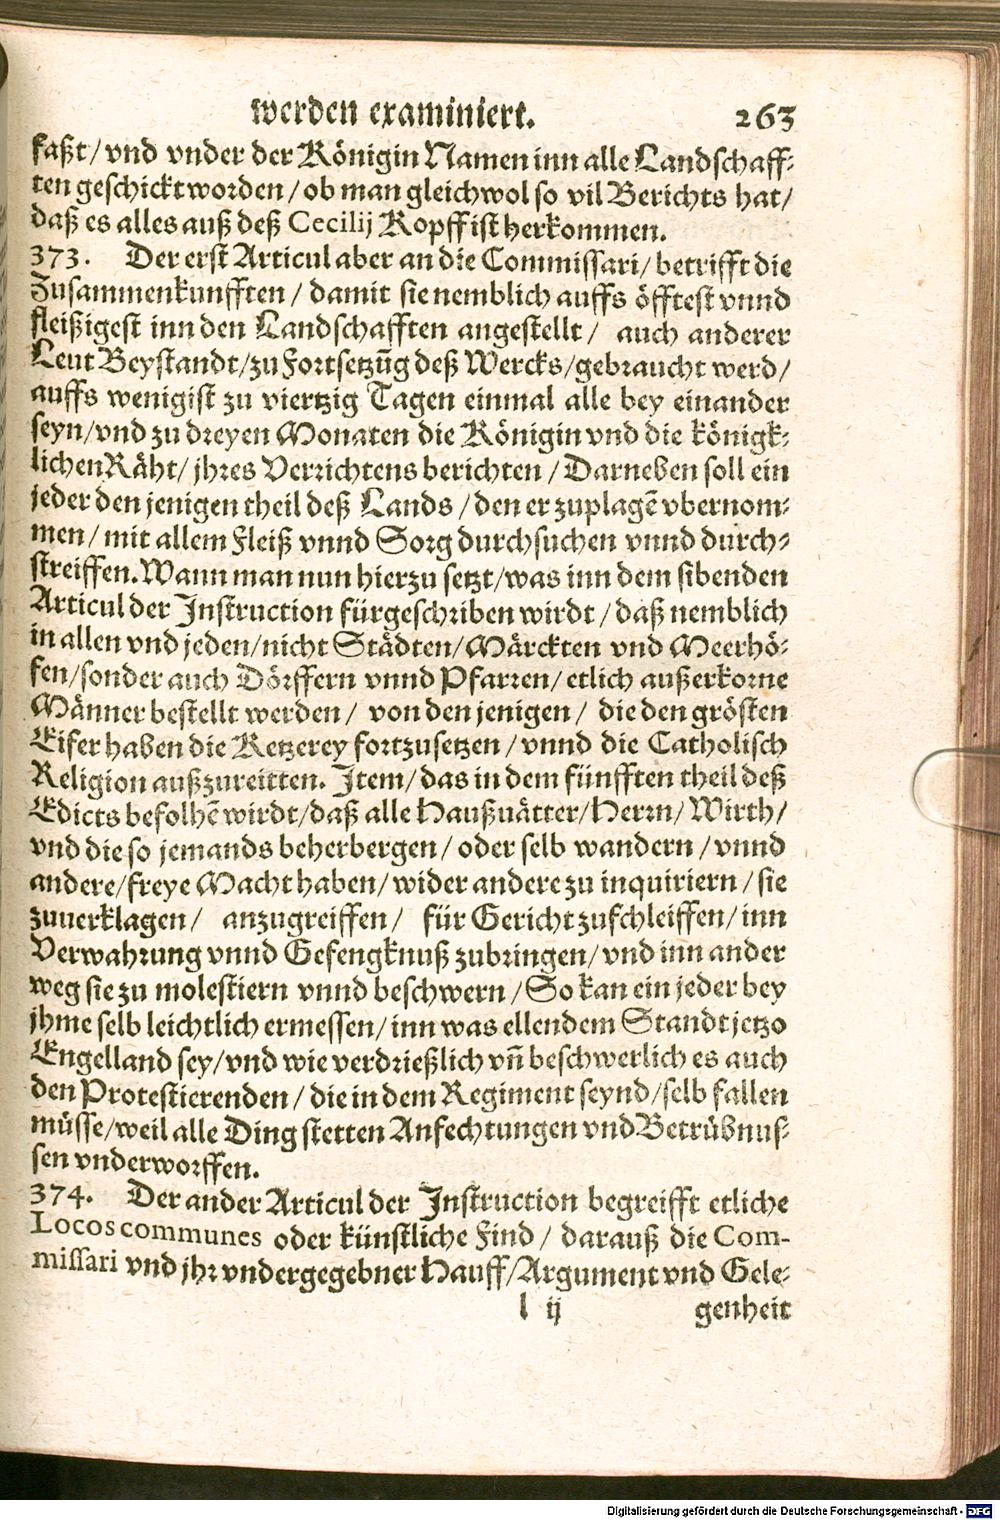 werden examiniert. 263
faßt/vnd vnder der Königin Namen inn alle Landschaff-
ten geschickt worden/ob man gleichwol so vil Berichts hat/
daß es alles auß deß Cecilij Kopff ist herkommen.
373. Der erst Articul aber an die Commissari/betrifft die
Zusammenkunfften/damit sie nemblich auffs öfftest vnnd
fleißigest inn den Landschafften angestellt/ auch anderer
Leut Beystandt/zu Fortsetzũg deß Wercks/gebraucht werd/
auffs wenigist zu viertzig Tagen einmal alle bey einander
seyn/vnd zu dreyen Monaten die Königin vnd die königk-
lichen Räht/jhres Verrichtens berichten/Darneben soll ein
jeder den jenigen theil deß Lands/den er zuplagẽ vbernom-
men/mit allem Fleiß vnnd Sorg durchsuchen vnnd durch-
streiffen. Wann man nun hierzu setzt/was inn dem sibenden
Articul der Instruction fürgeschriben wirdt/daß nemblich
in allen vnd jeden/nicht Städten/Märckten vnd Meerhö-
fen/sonder auch Dörffern vnnd Pfarren/etlich außerkorne
Männer bestellt werden/ von den jenigen/ die den grösten
Eifer haben die Ketzerey fortzusetzen/vnnd die Catholisch
Religion außzureitten. Item/das in dem fünfften theil deß
Edicts befolhẽ wirdt/daß alle Haußuätter/Herrn/Wirth/
vnd die so jemands beherbergen/oder selb wandern/vnnd
andere/freye Macht haben/wider andere zu inquiriern/sie
zuuerklagen/ anzugreiffen/ für Gericht zuschleiffen/inn
Verwahrung vnnd Gefengknuß zubringen/vnd inn ander
weg sie zu molestiern vnnd beschwern/So kan ein jeder bey
jhme selb leichtlich ermessen/inn was ellendem Standt jetzo
Engelland sey/vnd wie verdrießlich vñ beschwerlich es auch
den Protestierenden/die in dem Regiment seynd/selb fallen
müsse/weil alle Ding stetten Anfechtungen vnd Betrübnus-
sen vnderworffen.
374. Der ander Articul der Instruction begreifft etliche
Locos communes oder künstliche Find/darauß die Com-
missari vnd jhr vndergegebner Hauff/Argument vnd Gele-
l ij genheit
Digitalisierung gefördert durch die Deutsche Forschungsgemeinschaft - DFG